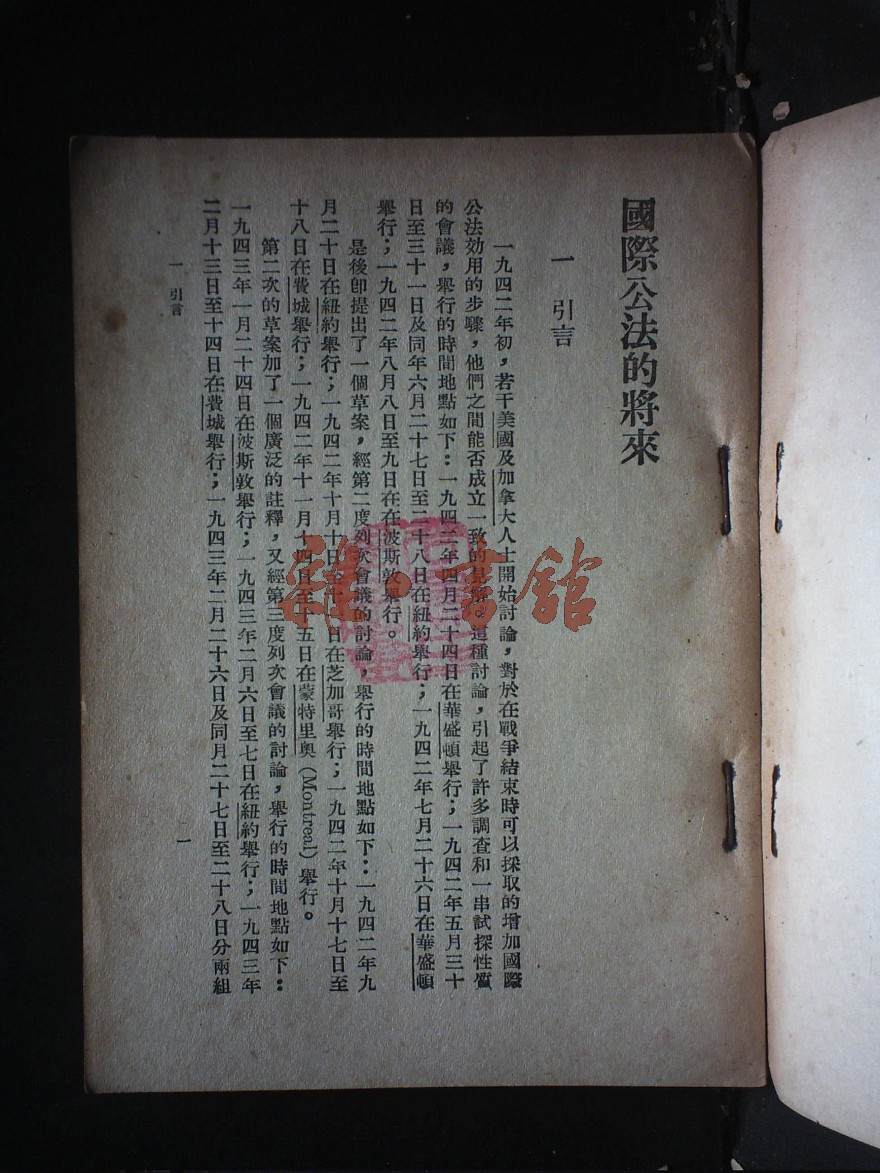 國際公法的將來
一 引言
一九四二年初，若干美國及加拿大人士開始討論，對於在戰爭結束時可以採取的增加國際
公法効用的步驟，他們之間能否成立一致的見解。這種討論，引起了許多調查和一串試探性質
的會議，舉行的時間地點如下：一九四二年四月二十四日在華盛頓舉行；一九四二年五月三十
日至三十一日及同年六月二十七日至二十八日在紐約舉行；一九四二年七月二十六日在華盛頓
舉行；一九四二年八月八日至九日在在波斯敦舉行。
是後卽提出了一個草案，經第二度列次會議的討論，舉行的時間地點如下：一九四二年九
月二十日在紐約舉行；一九四二年十月十日至十一日在芝加哥舉行；一九四二年十月十七日至
十八日在費城舉行；一九四二年十一月十四日至十五日在蒙特里奧（Montreal）舉行。
第二次的草案加了一個廣泛的註釋，又經第三度列次會議的討論，舉行的時間地點如下：
一九四三年一月二十四日在波斯敦舉行；一九四三年二月六日至七日在紐約舉行；一九四三年
二月十三日至十四日在費城舉行；一九四三年二月二十六日及同月二十七日至二十八日分兩組
一 引言
一
雜·書館